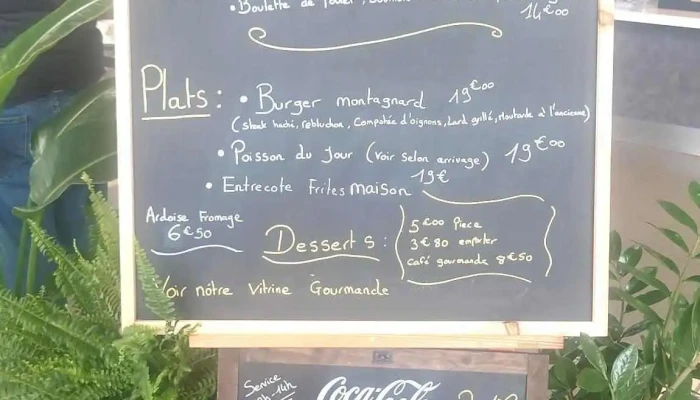 • Boulette de
14€00
Plats : • Burger montagnard 19€00
(steak haché, rebluchon, Compotée d'oignons, Lard grillé, Moutarde à l'ancienne)
• Poisson du Jour (Voir Selon arrivage) 19€00
• Entrecote Frites maison 19€
Ardoise Fromage
6€50
Desserts :
5€00 Piece
3€80 emporter
café gourmande 8€50
Voir nôtre Vitrine Gourmande
Service
14h
Coca-Cola